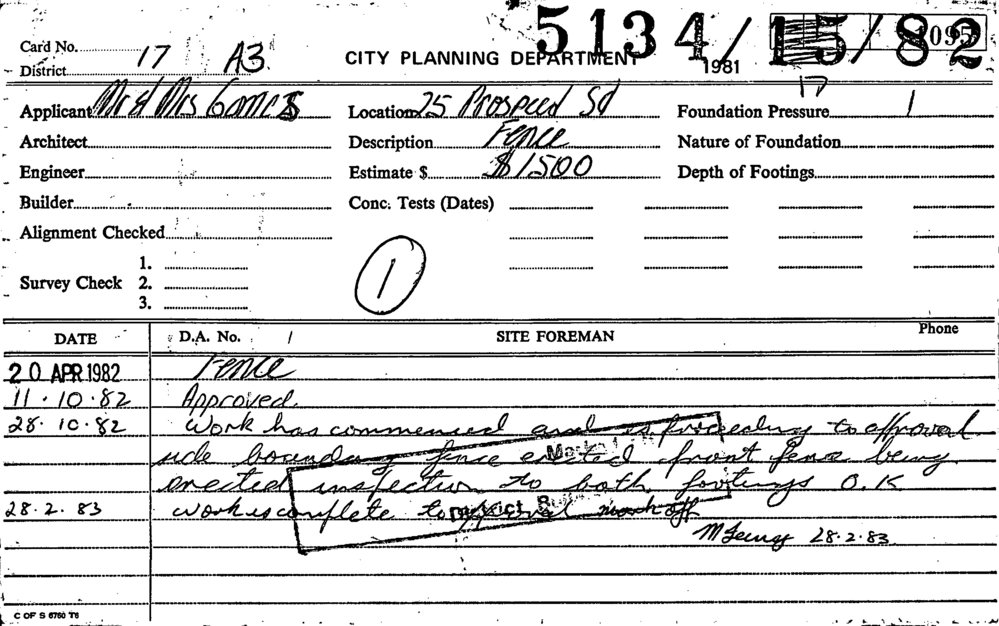 5134/15/82
1981
17
Card No. 17 A3
District
CITY PLANNING DEPARTMENT
Applicant Mr & Mrs Gomes Location 25 Prospect Sd Foundation Pressure 1
Architect Description Fence Nature of Foundation
Engineer Estimate $ $1500 Depth of Footings
Builder Conc. Tests (Dates)
Alignment Checked
1.
Survey Check 2.
3.
1
DATE D.A. No. / SITE FOREMAN Phone
20 APR 1982 Fence
11.10.82 Approved.
28.10.82 Work has commenced and is proceeding to approval
side boundary fence erected front fence being
erected inspection to both footings O.K
28.2.83 work is complete to approval mark off
28.2.83
C OF S 6760 T6